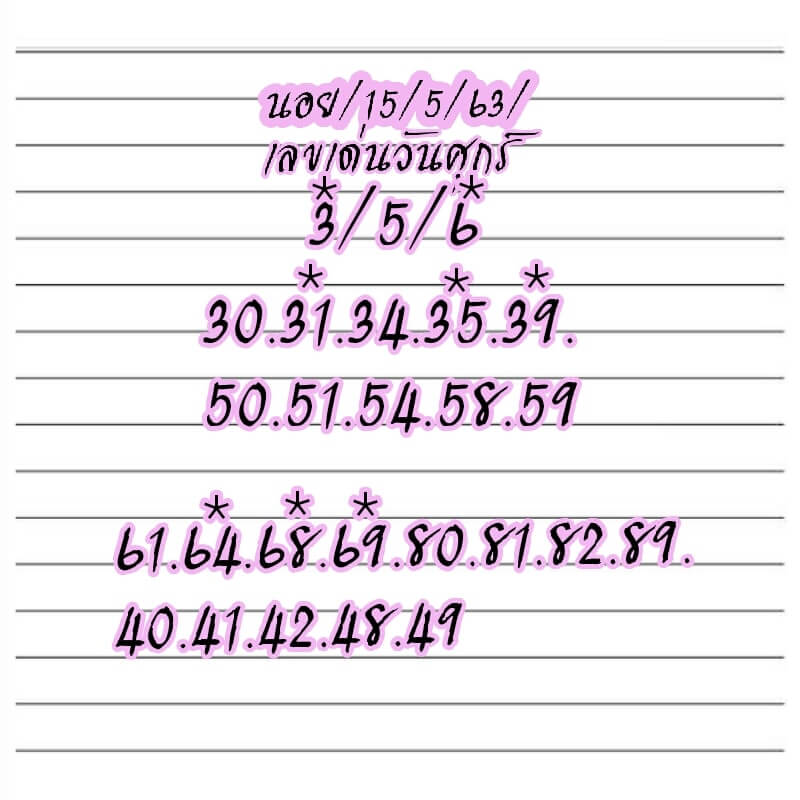 นอย/15/5/63/
เลขเด่นวันศุกร์
* *
3/5/6
* * *
30.31.34.35.39.
50.51.54.58.59
* * *
61.64.68.69.80.81.82.89.
40.41.42.48.49